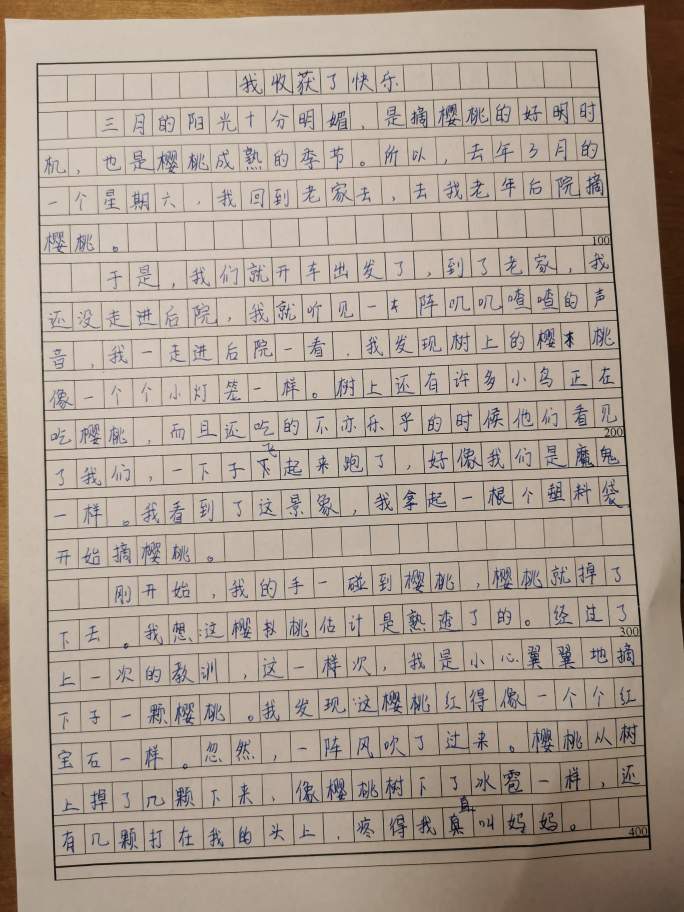 我收获了快乐
三月的阳光十分明媚，是摘樱桃的好明时
机，也是樱桃成熟的季节。所以，去年3月的
一个星期六，我回到老家去，去我老年后院摘
樱桃。
100
于是，我们就开车出发了，到了老家，我
还没走进后院，我就听见一阵叽叽喳喳的声
音，我一走进后院一看，我发现树上的樱桃
像一个个小灯笼一样。树上还有许多小鸟正在
吃樱桃，而且还吃的不亦乐乎的时候他们看见
200
了我们，一下子飞起来跑了，好像我们是魔鬼
一样。我看到了这景象，我拿起一根个塑料袋
开始摘樱桃。
刚开始，我的手一碰到樱桃，樱桃就掉了
下去。我想：这樱桃估计是熟透了的。经过了
300
上一次的教训，这一样次，我是小心翼翼地摘
下子一颗樱桃。我发现：这樱桃红得像一个个红
宝石一样。忽然，一阵风吹了过来。樱桃从树
上掉了几颗下来，像樱桃树下了冰雹一样，还
有几颗打在我的头上，疼得我直叫妈妈。
400